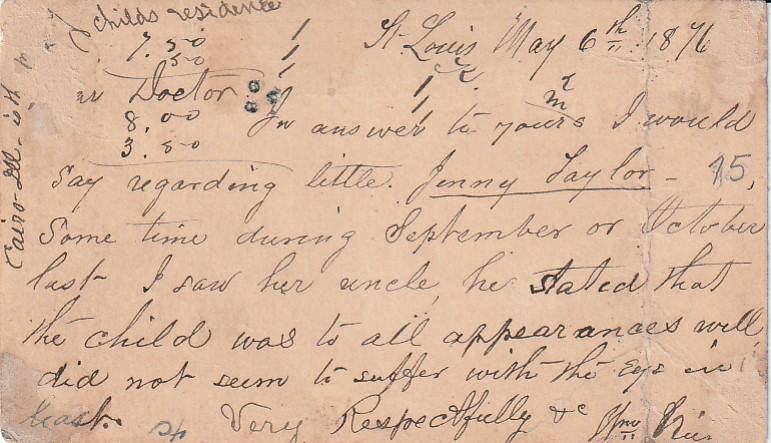 childs residence
7.50
.50
St. Louis May 6th 1876
Doctor
8.00
In answer to yours I would
3.50
say regarding little. Jenny Taylor - 15,
Some time during September or October
last I saw her uncle, he stated that
the child was to all appearances well,
did not seem to suffer with the eye in
least. Very Respectfully &c
Cairo-Ill-is